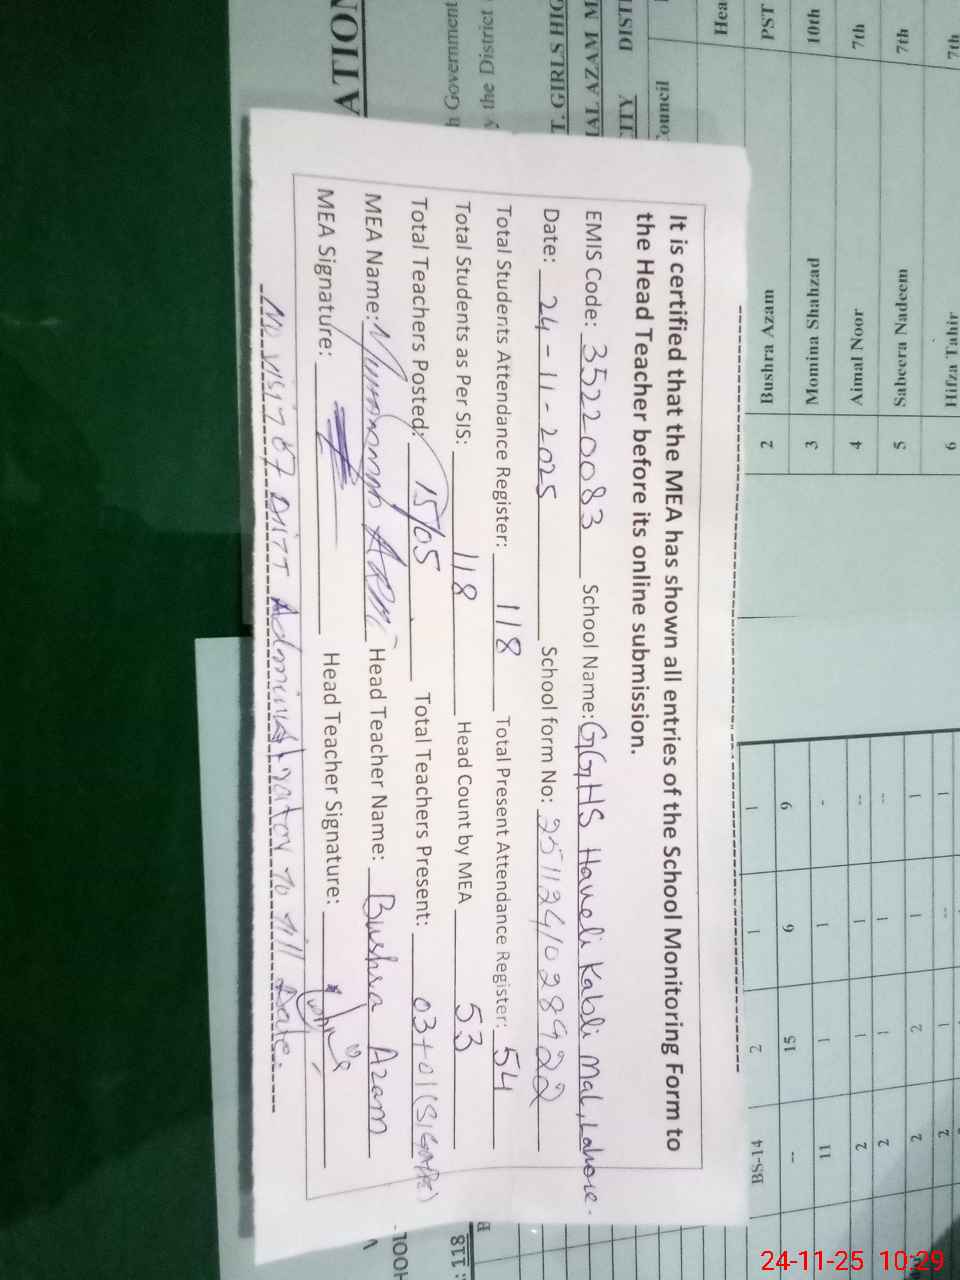 It is certified that the MEA has shown all entries of the School Monitoring Form to
the Head Teacher before its online submission.
EMIS Code: 35220083 School Name: GGHS Haveli Kabli Mal, Lahore.
Date: 24-11-2025 School form No:
Total Students Attendance Register: 118 Total Present Attendance Register: 54
Total Students as Per SIS: 118 Head Count by MEA 53
Total Teachers Posted: 15/05 Total Teachers Present: 03+01
MEA Name: Head Teacher Name: Bushra Azam
MEA Signature: Head Teacher Signature:
No visit of Distt Administrator to till Date.
ATION
Government
y the District
T. GIRLS HIG
M AZAM
DIST
ITY
Council
Hea
PST
10th
7th
7th
7th
Bushra Azam
Momina Shahzad
Aimal Noor
Saheera Nadeem
Hifza Tahir
2
3
4
5
6
6 9 15 --
1 1 2 BS-14
- 1 1 11
-- 1 1 2
-- 1 1 2
1 1 2 2
1 -- 1 2
: 118
24-11-25 10:29